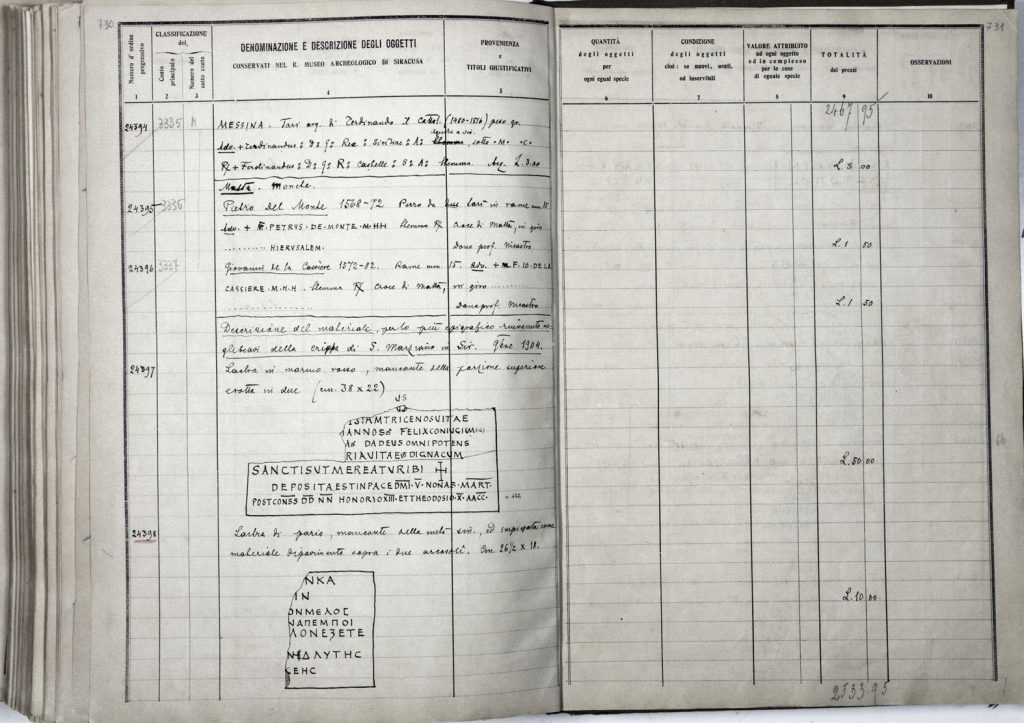 730
731
Numero d'ordine progressivo
CLASSIFICAZIONE dei
Conto principale
Numero del sotto conto
DENOMINAZIONE E DESCRIZIONE DEGLI OGGETTI
CONSERVATI NEL R. MUSEO ARCHEOLOGICO DI SIRACUSA
PROVENIENZA
e
TITOLI GIUSTIFICATIVI
QUANTITÀ
degli oggetti
per
ogni egual specie
CONDIZIONE
degli oggetti
cioè: se nuovi, usati,
od inservibili
VALORE ATTRIBUITO
ad ogni oggetto
ed in complesso
per le cose
di eguale specie
TOTALITÀ
dei prezzi
OSSERVAZIONI
1 2 3 4 5 6 7 8 9 10
2467 95
24394 3335 MESSINA. Tarì arg. di Ferdinando il Cattol. (1480-1516) peso gr.
Adv. + Ferdinandus : D : G : Rex : : A : sotto · M · · C ·
R/ + Ferdinandus : D : G : R : Castelle : S : A : Stemma. L. 3.00
L. 3 00
Malta. Monete.
24395 3336 Pietro del Monte 1568-72 Pezzo da due tarì in rame mm 15
Adv. + F. PETRVS · DE · MONTE · M · HH Stemma R/ Croce di Malta, in giro
.......... HIERVSALEM. Dono prof.
L. 1 50
24396 3337 Giovanni de la Cassière 1572-82. Rame mm. 15. Adv. + F. IO · DE · LA
CASSIERE · M · H · H · Stemma R/ Croce di Malta, in giro ..........
Dono prof.
L. 1 50
Descrizione del materiale, per lo più epigrafico rinvenuto
gli scavi della cripta di S. Marziano in Sir. 1904.
24397 Lastra in marmo rosso, mancante della porzione superiore
e rotta in due (cm. 38 x 22)
US
ISIAMTRICENOSVITAE
ANNOS FELIXCONIUGIUM
DADEUSOMNIPOTENS
RIAVITAE DIGNACUM
SANCTISUTMEREATURIBI
DEPOSITAESTINPACE DMI · V · NONAS · MART ·
POSTCONSS DD NN HONORIO XIII · ETTHEODOSIO · X · AACC ·
L. 50 00
66
24398 Lastra di pario, mancante della metà sin., ed impiegata come
materiale di pavimento sopra i due arcosoli. Cm. 26½ x 18.
NKA
IN
ONMELOC
NAΠEMΠOI
ΛONEZETE
ΛYTHC
EHC
L. 10 00
2533.95